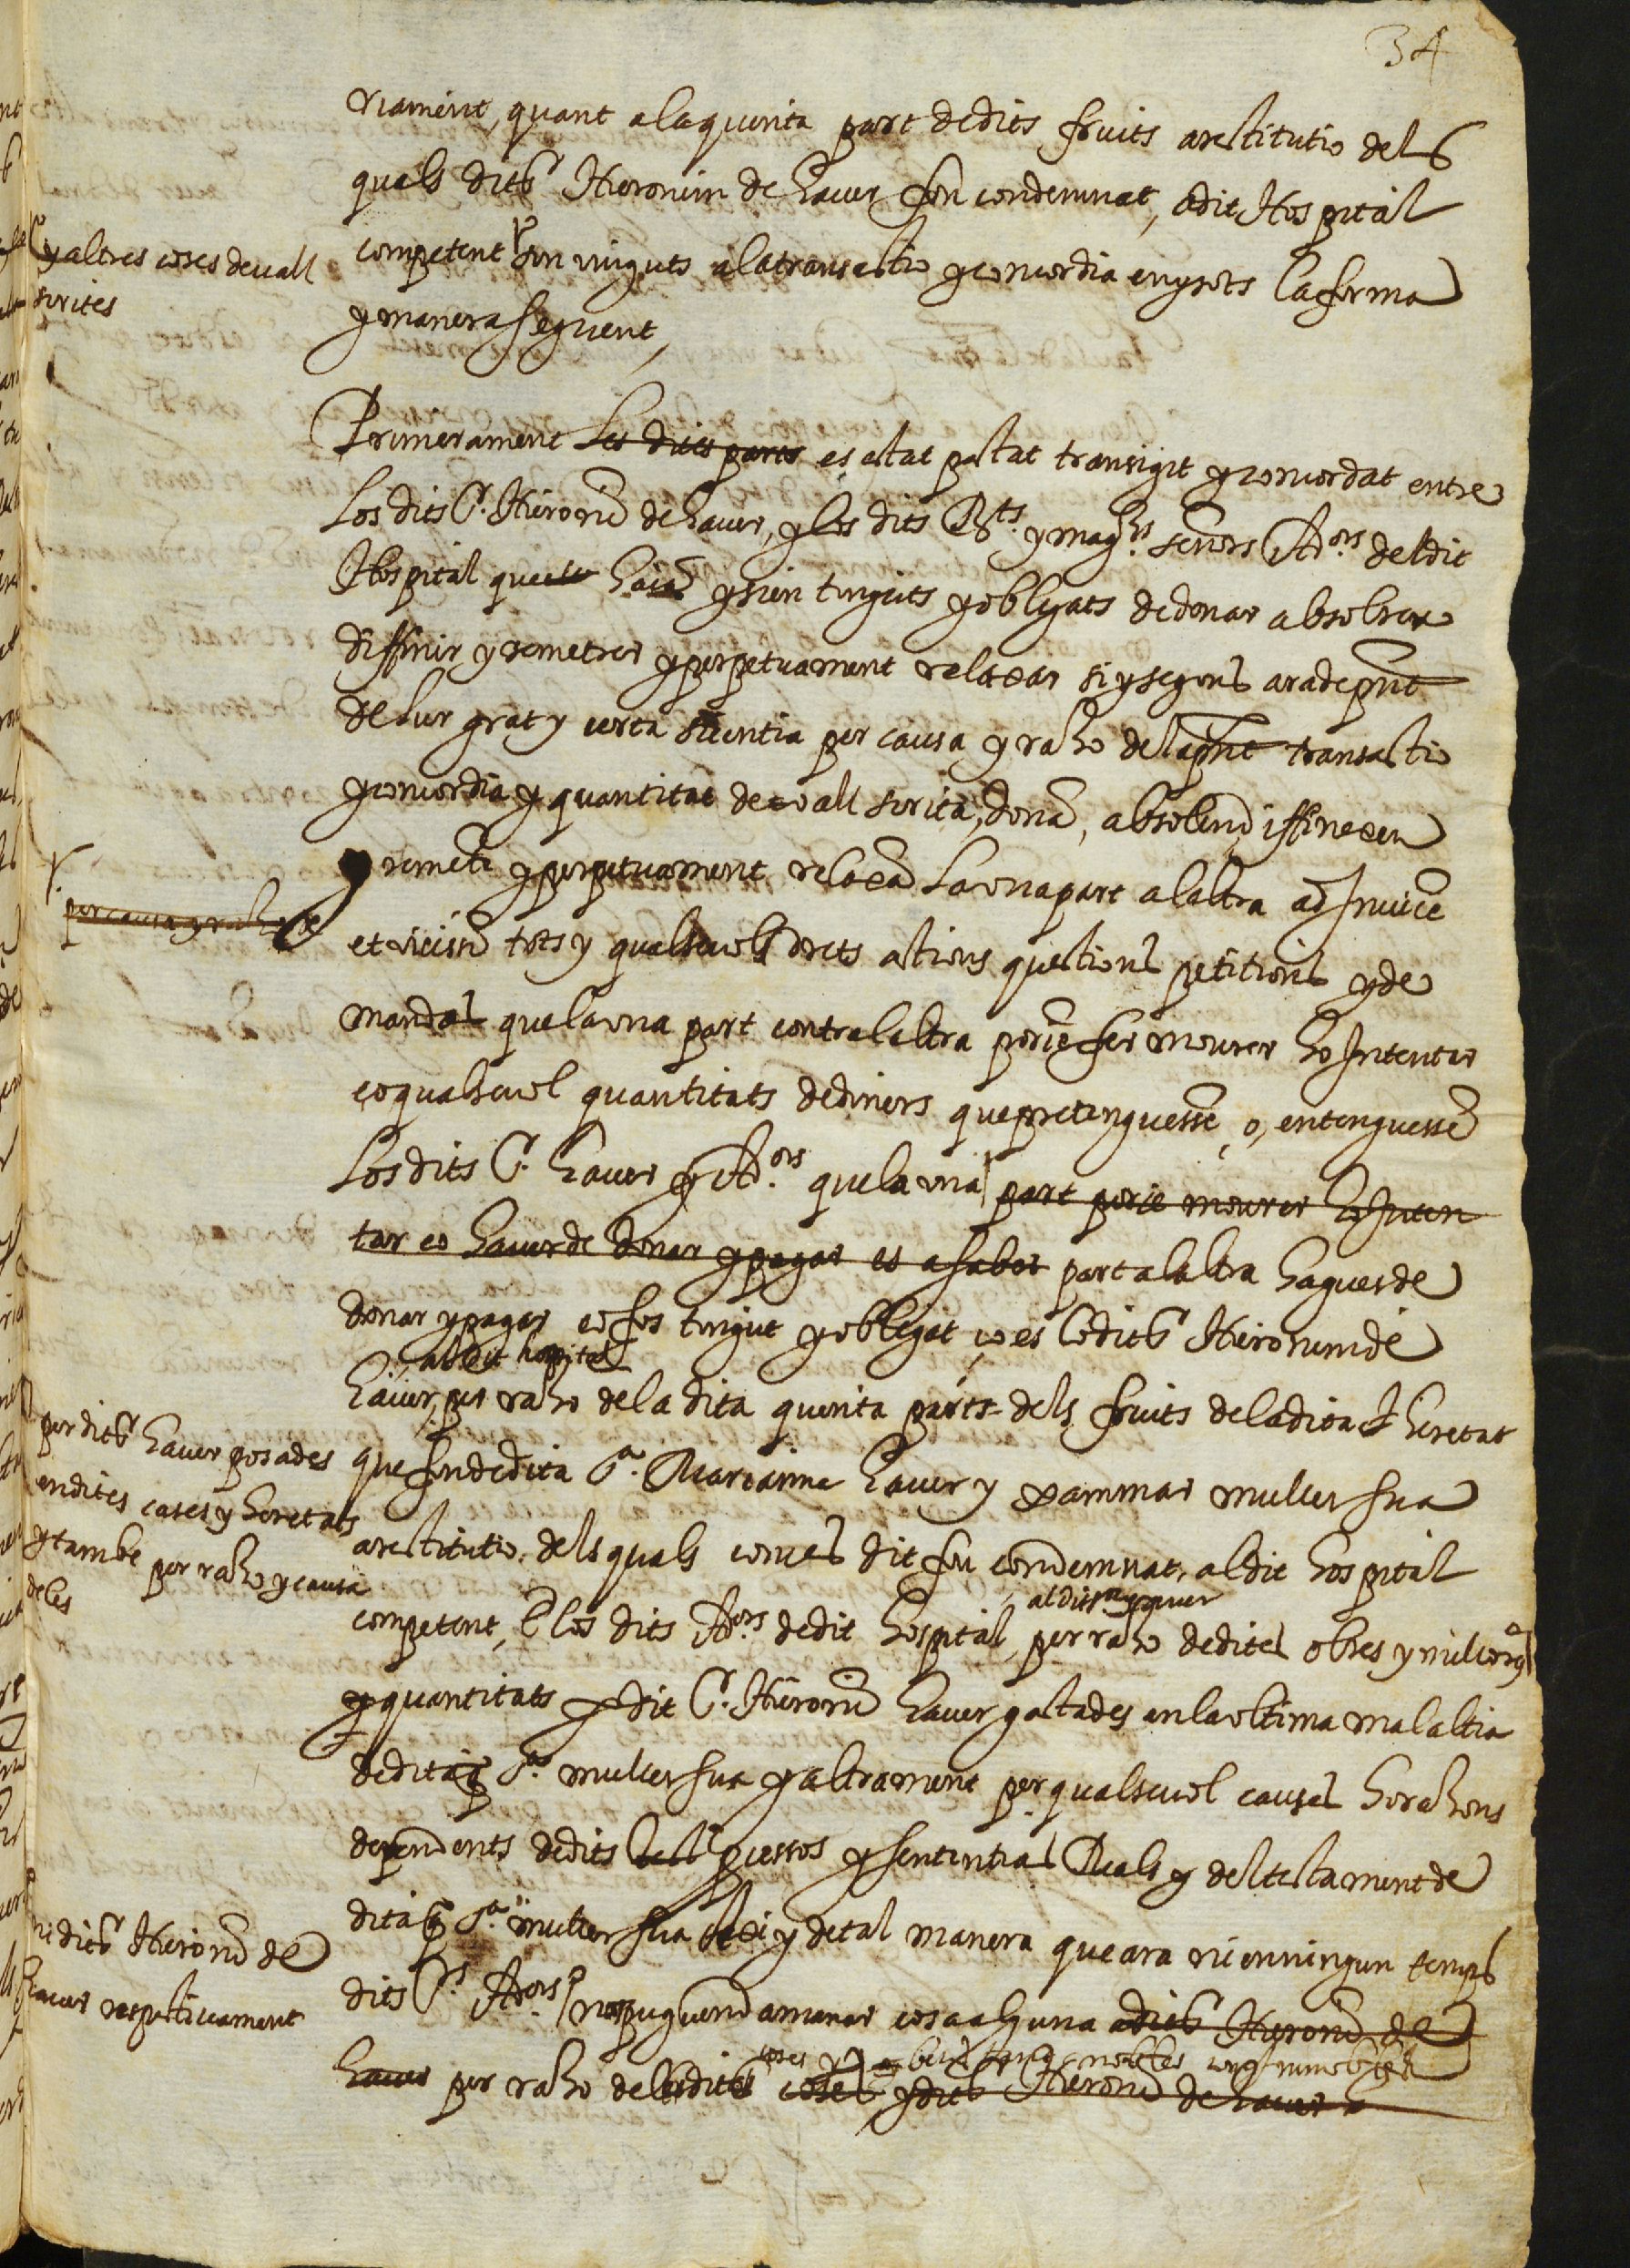 34
riament, quant a la quinta part de dits fruits a restitutio dels
quals dit Sr Hieronim de Hauer fou condemnat, a dit Hospital
competent son vinguts a la transactio y concordia en y sots la forma
y manera seguent,
y altres coses deuall
scrites
Primerament les dites parts es estat pactat transigit y concordat entre
los dits Sr. Hieroni de Hauer, y los dits Rts. y magchs senors Adors del dit
Hospital que haien y sien tinguts y obligats de donar absolrer
diffinir y remetrer y perpetuament relaxar si y segons ara de pnt
de lur grat y certa scientia per causa y raho de la pnt transactio
y concordia y quantitat deuall scrita, dona, absolen, diffineixen
y remete y perpetuament relaxa la una part a laltra ad Invice
per causa y raho
et vicissi tots y qualseuols drets actions questions petitions y de
mandas que la una part contra laltra porie fer mourer ho Intentar
eo qualseuol quantitats de diners que pretenguesse, o, entenguesse
los dits Sr. Hauer y Adors que la una part porie mourer ho Inten
tar eo hauer de donar y pagar es a saber part a laltra hagues de
donar y pagar eo fos tingut y obligat ço es lo dit Sr Hieronim de
al dit hospital
Hauer, per raho de la dita quinta parts dels fruits de la dita heretat
que fon de dita Sa. Marianna Hauer y muller sua
a restitutio dels quals com es dit fou condemnat, al dit hospital
al dit Sr Hauer
competent, E los dits Adors de dit Hospital, per raho de dites obres y millores
per dit Sr Hauer posades
en dites cases y heretats
y tambe per raho y causa
de les
y quantitats per dit Sr. Hieroni Hauer gastades en la ultima malaltia
de dita Sa. muller sua y altrament per qualseuol causes ho rahons
dependents de dits processos y sententias Reals y del testament de
dita Sa. muller sua y de tal manera que ara ni en ningun temps
dits Srs Adors no puguen demanar cosa alguna a dit Sr Hieroni de
ni dit Sr Hieroni de
Hauer respectiuament
Hauer per raho de les dites coses y dit Sr Hieroni de Hauer